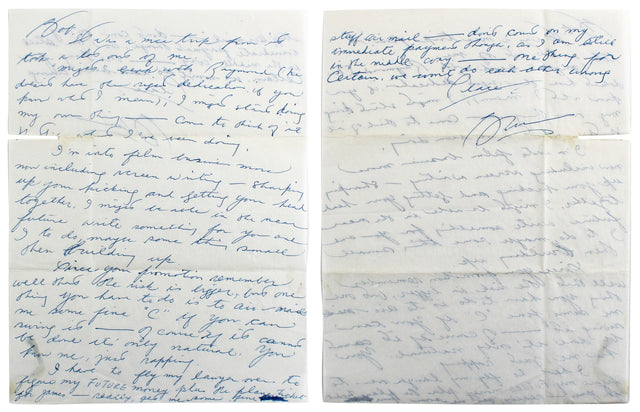 Bob,
It was a nice trip
took a lot out of me
might work with Raymond (he
doesn't have the right dedication if you
know what I mean); I might start doing
my own thing — come to think of it
what I've been doing.
I'm into film business more
now including screen writing — sharping
up your kicking and getting your head
together. I might be able in the near
future write something for you and
I to do, maybe some thing small
then building up
Since your promotion remember
well that the risk is bigger, but one
thing you have to do is to air-mail
me some fine "C" if you can
swing it — of course if it cannot
be done it's only natural. You
know me, just rapping
I have to fly my lawyer over to
figure my FUTURE money plus the plane ticket
for James — really, get me some fine
stuff air mail — don't count on my
immediate payment though, as I am still
in the middle — one thing for
certain, we won't do each other wrong
Peace!
Bruce